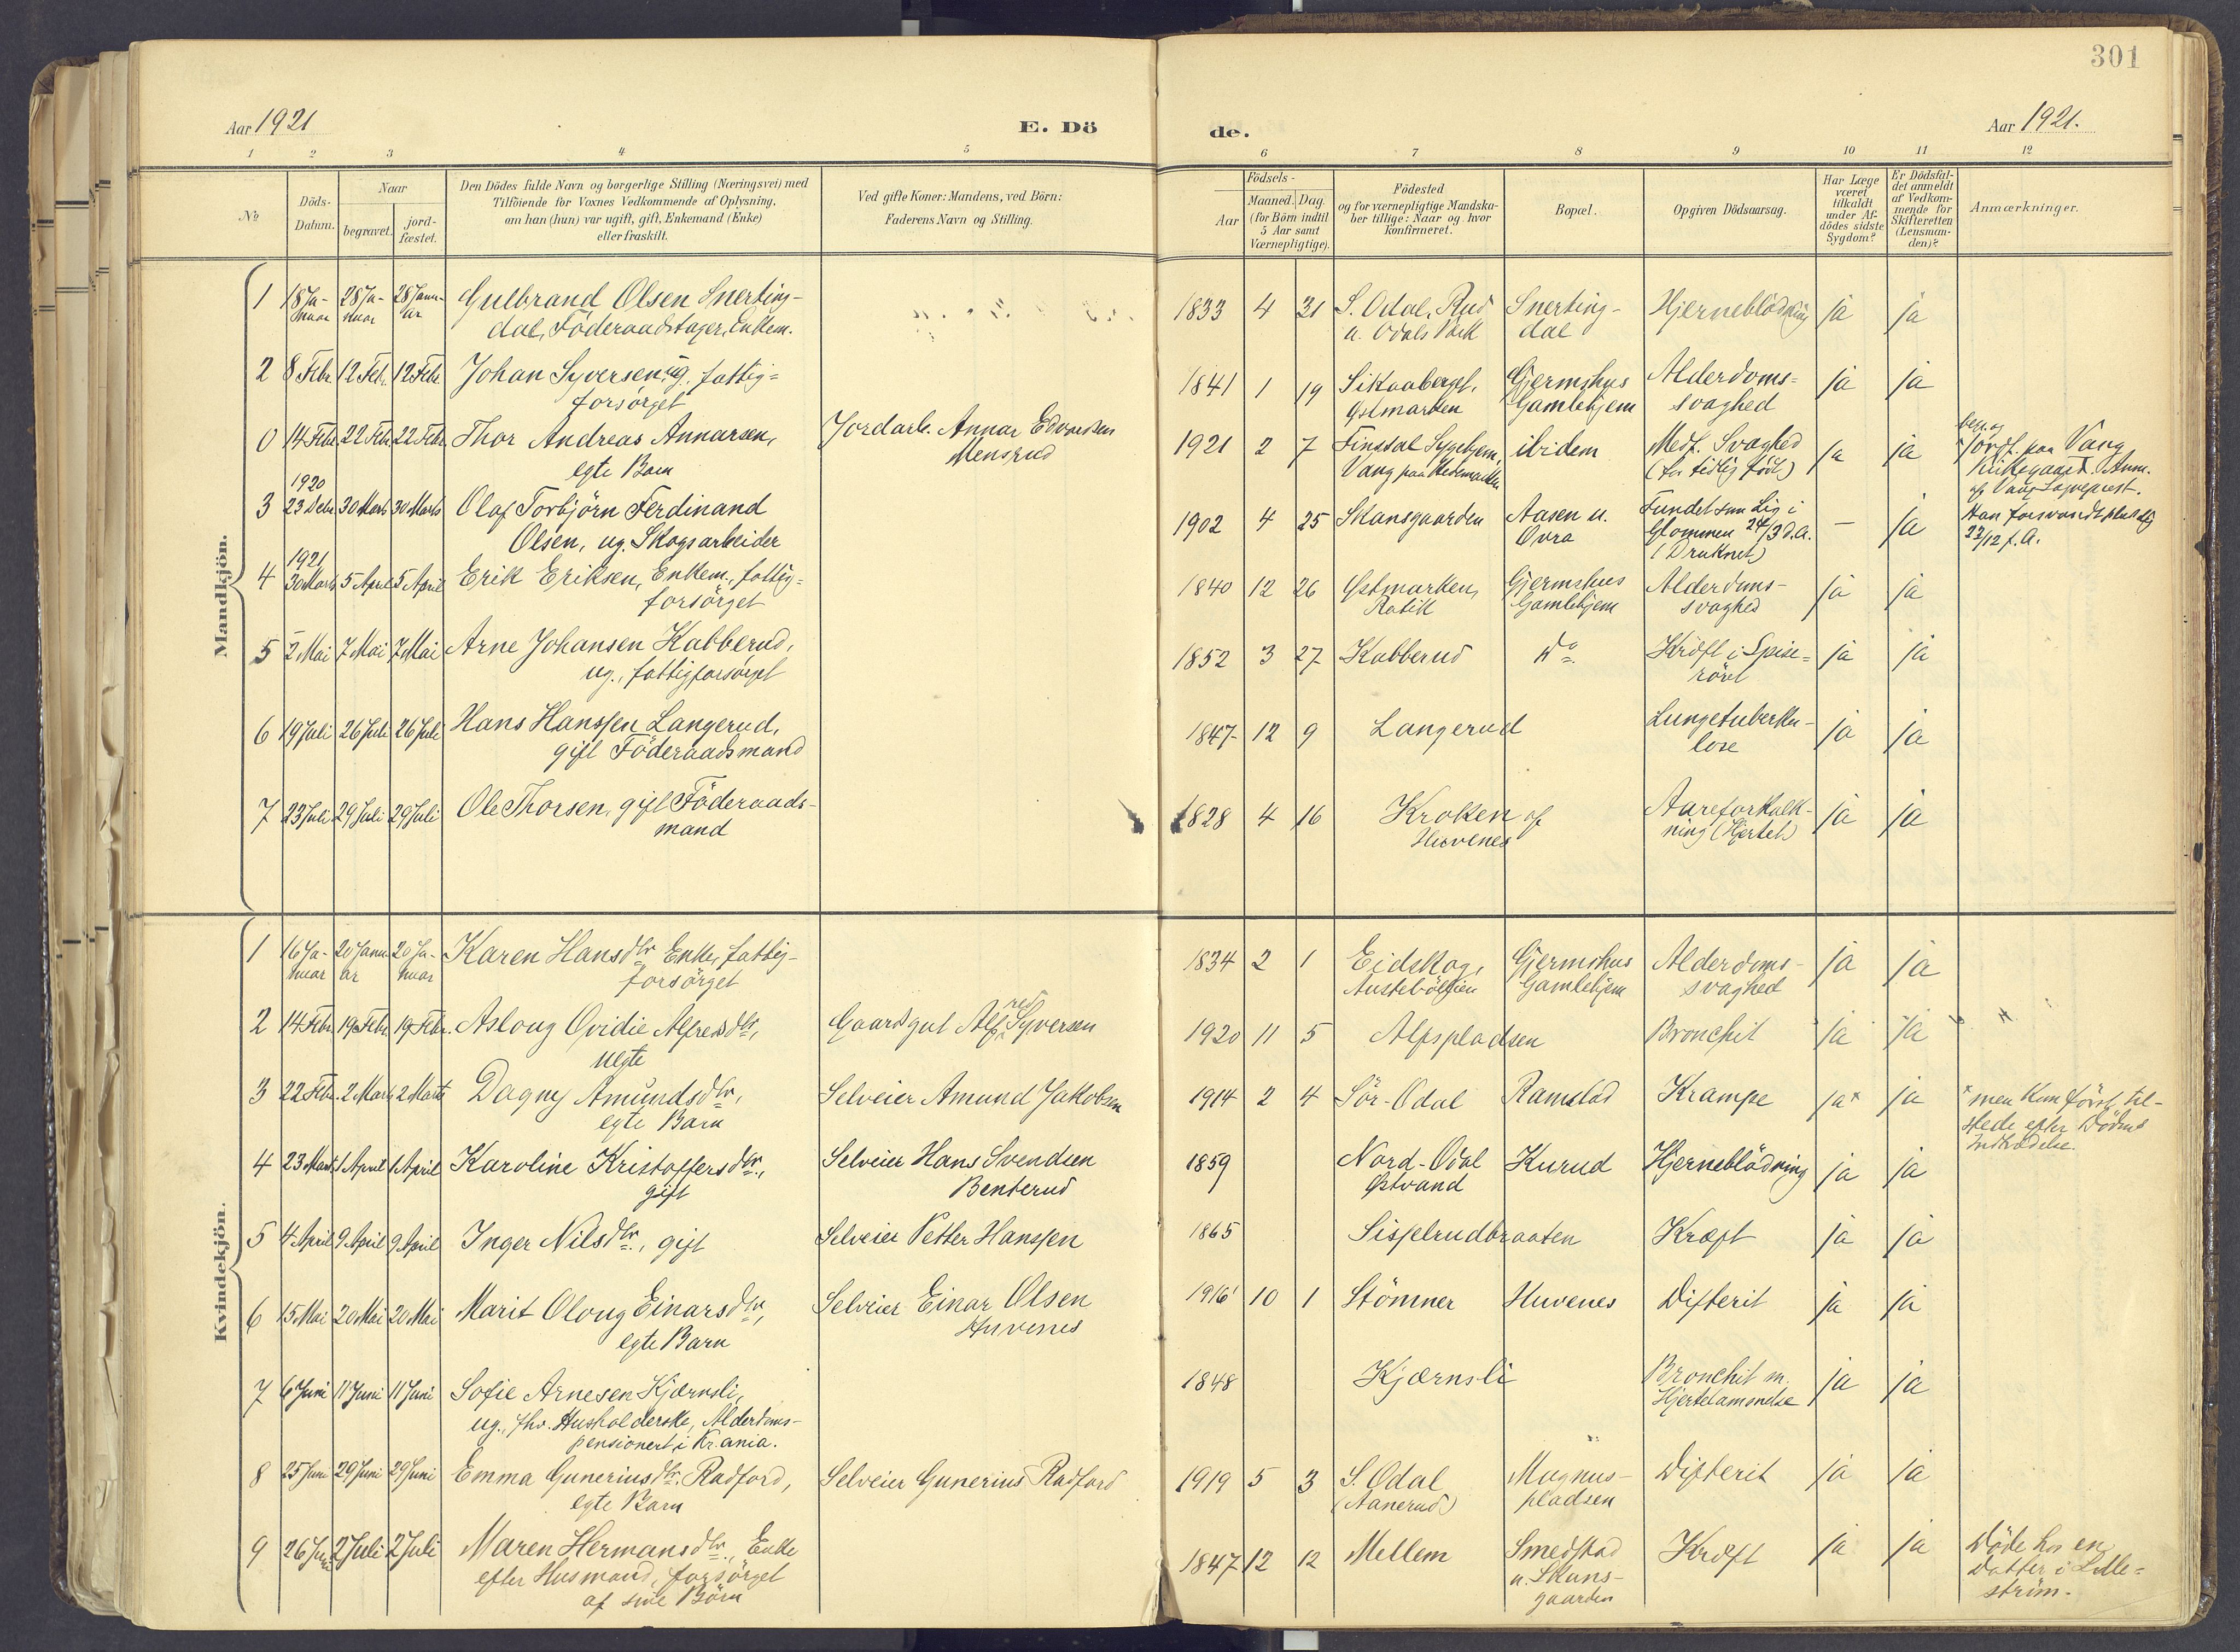 301
Aar 1921
E. Dö
de.
Aar 1921.
1 2 3 4 5 6 7 8 9 10 11 12
No
Döds-
Datum.
Naar
begravet.
jord-
fæstet.
Den Dödes fulde Navn og borgerlige Stilling (Næringsvei) med
Tilföiende for Voxnes Vedkommende af Oplysning,
om han (hun) var ugift, gift, Enkemand (Enke)
eller fraskilt.
Ved gifte Koner: Mandens, ved Börn:
Faderens Navn og Stilling.
Födsels-
Aar
Maaned. Dag.
(for Börn indtil
5 Aar samt
Værnepligtige).
Födested
og for værnepligtige Mandska-
ber tillige: Naar og hvor
konfirmeret.
Bopæl.
Opgiven Dödsaarsag.
Har Læge
været
tilkaldt
under Af-
dödes sidste
Sygdom?
Er Dödsfal-
det anmeldt
af Vedkom-
mende for
Skifteretten
(Lensman-
den)?
Anmærkninger.
Mandkjön.
1 18 Ja- 28 Ja- 28 Janu- Gulbrand Olsen Snerting- 1833 4 21 S. Odal, Rud Snerting- Hjerneblödning ja ja
nuar nuar ar dal, Föderaadstager, Enkem. u. Odals Værk dal
2 8 Febr. 12 Feb. 12 Febr. Johan Syversen, ug. fattig- 1841 1 19 Sikaaberget, Gjermshus Alderdoms- ja ja
forsörget Østmarken Gamlehjem svaghed
0 14 Febr. 22 Febr. 22 Febr. Thor Andreas Annarsen, Jordarb. Annar Edvardsen 1921 2 7 Finsdal Sygehjem, ibidem Medf. Svaghed ja ja begr. og jordf. paa Vang
egte Barn Mensrud Vang paa Hedemarken (for tidlig född) Kirkegaard. Anm.
af Vang Sogneprest.
1920
3 23 Debr 30 Marts 30 Marts Olaf Torbjörn Ferdinand 1902 4 25 Skansgaarden Aasen u. Fundet som Lig i — ja Han forsvandt
Olsen, ug. Skogsarbeider Ovra Glommen 24/3 d. A. 22/12 f. A.
(Druknet)
1921
4 30 Marts 5 April 5 April Erik Eriksen, Enkem., fattig- 1840 12 26 Østmarken, Gjermshus Alderdoms- ja ja
forsörget Ratik Gamlehjem svaghed
5 2 Mai 7 Mai 7 Mai Arne Johansen Kabberud, 1852 3 27 Kabberud do Kræft i Spise- ja ja
ug., fattigforsörget röret
6 19 Juli 26 Juli 26 Juli Hans Hanssen Langerud, 1847 12 9 Langerud Lungetuberku- ja ja
gift Föderaadsmand lose
7 23 Juli 29 Juli 29 Juli Ole Thorsen, gift Föderaads- 1828 4 16 Kroken af Aareforkalk- ja ja
mand Huvenes ning (Hjertet)
Kvindekjön.
1 16 Ja- 20 Janu 20 Ja- Karen Hansdtr. Enke, fattig- 1834 2 1 Eidskog, Gjermshus Alderdoms- ja ja
nuar ar nuar forsörget Gamlehjem svaghed
2 14 Febr. 19 Febr. 19 Febr. Aslaug Ovidie Alfredsdtr., Gaardgut Alfred Syversen 1920 11 5 Alfspladsen Bronchit ja ja
uegte
3 22 Febr. 2 Marts 2 Marts Dagny Amundsdtr., Selveier Amund Jakobsen 1914 2 4 Sör-Odal Ramstad Krampe ja* ja * men kom först til-
egte Barn stede efter Dödens
Indtrædelse.
4 23 Marts 1 April 1 April Karoline Kristoffersdtr., Selveier Hans Svendsen 1859 Nord-Odal Kurud Hjerneblödning ja ja
gift Benterud Østvand
5 4 April 9 April 9 April Inger Nilsdtr., gift Selveier Petter Hanssen 1865 Sisselrudbraaten Kræft ja ja
6 15 Mai 20 Mai 20 Mai Marit Olaug Einarsdtr., Selveier Einar Olsen 1916 10 1 Stömner Huvenes Difterit ja ja
egte Barn Huvenes
7 6 Juni 11 Juni 11 Juni Sofie Arnesen Kjærnsli, 1848 Kjærnsli Bronchit m. ja ja
ug., fhv. Husholderske, Alderdoms- Hjertelamhedse
pensionert i Kr.ania.
8 25 Juni 29 Juni 29 Juni Emma Guneriusdtr. Radford, Selveier Gunerius Radford 1919 5 3 S. Odal Magnus- Difterit ja ja
egte Barn (Aanerud) pladsen
9 26 Juni 2 Juli 2 Juli Maren Hermansdtr., Enke 1847 12 12 Mellem Smedstad Kræft ja ja Döde hos en
efter Husmand, forsörget u. Skans- Datter i Lille-
af sine Börn gaarden ström.